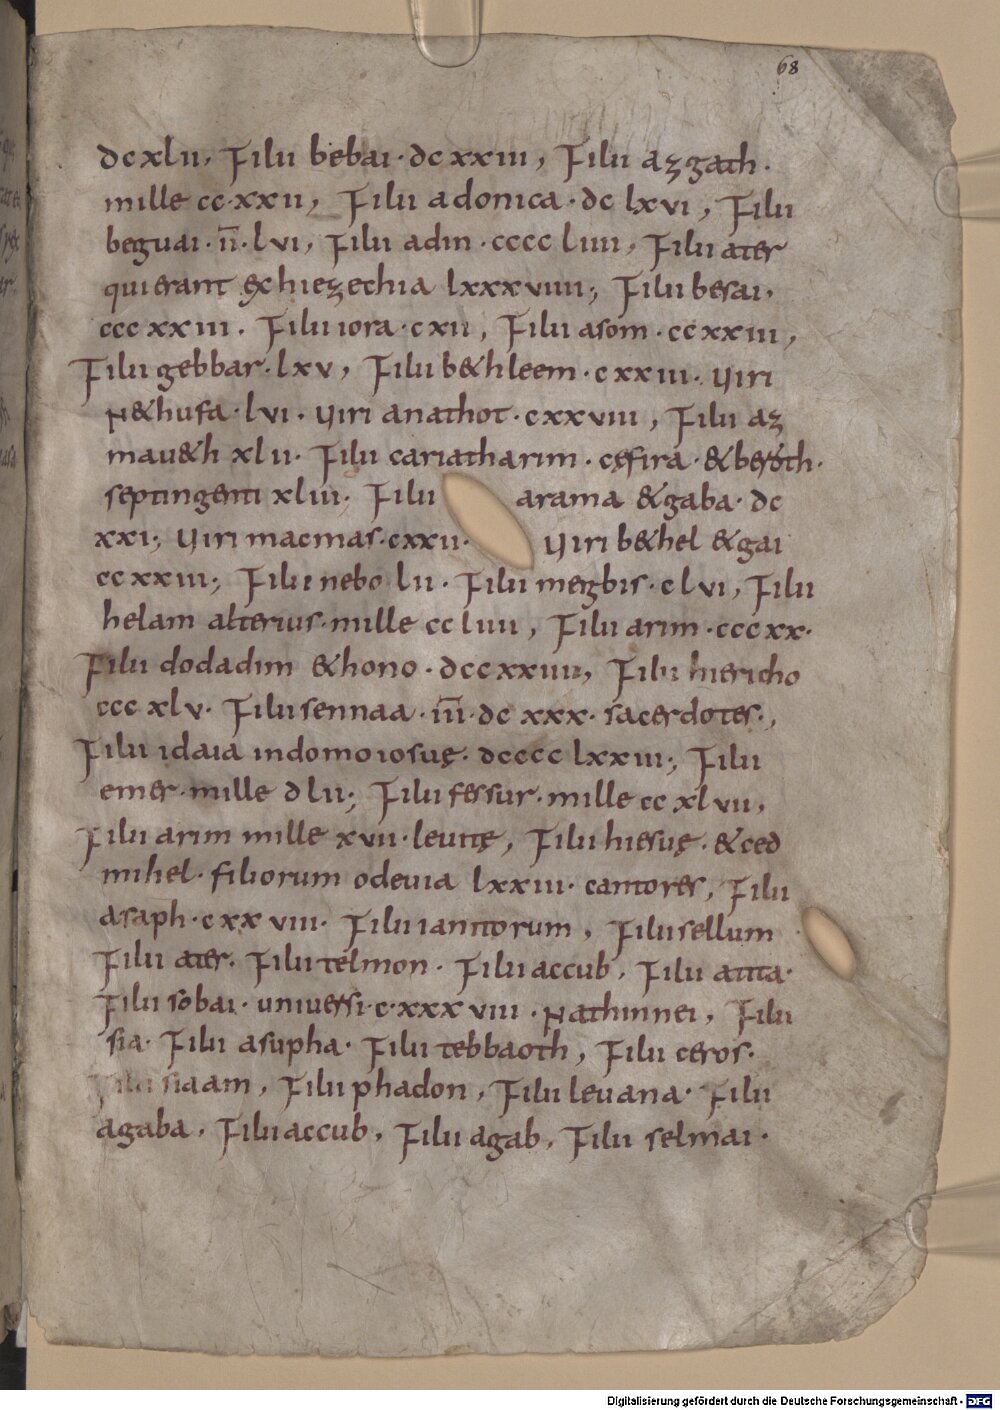 68
dc xlii, Filii bebai · dc xxiii, Filii azgath ·
mille cc · xxii, Filii adonica · dc lxvi, Filii
beguai · īī · lvi, Filii adin · cccc liiii, Filii ater
qui erant ex hiezechia lxxxviiii; Filii besai,
ccc xxiii. Filii iora · cxii, Filii asom · cc xxiii,
Filii gebbar · lxv, Filii b&hleem · c xxiii · Uiri
N&hufa · lvi · Uiri anathot · c xxviii, Filii az
mau&h xlii · Filii cariatharim · cęfira · & beroth ·
septingenti xliii; Filii arama & gaba · dc
xxi; Uiri macmas · cxxii · Uiri b&hel & gai
cc xxiii; Filii nebo lii · Filii megbis · c lvi, Filii
helam alterius · mille cc liiii, Filii arim · ccc xx ·
Filii dodadim & hono · dcc xxiiii, Filii hiericho
ccc xlv · Filii sennaa · īīī · dc xxx · sacerdotes · ,
Filii idaia in domo iosuę · dcccc lxxiii; Filii
emer · mille d lii; Filii fessur · mille cc xlvii,
Filii arim mille xvii · leuitę, Filii hiesuę · & ced
mihel · filiorum odeuia lxxiii · cantores, Filii
asaph · c xx viii · Filii ianitorum, Filii sellum
Filii ater · Filii telmon · Filii accub, Filii atita ·
Filii sobai · uniuersi · c · xxx viii · Nathinnei, Filii
sia · Filii asupha · Filii tebbaoth, Filii ceros ·
Filii siaam, Filii phadon, Filii leuana · Filii
agaba, Filii accub, Filii agab, Filii selmai ·
Digitalisierung gefördert durch die Deutsche Forschungsgemeinschaft - DFG